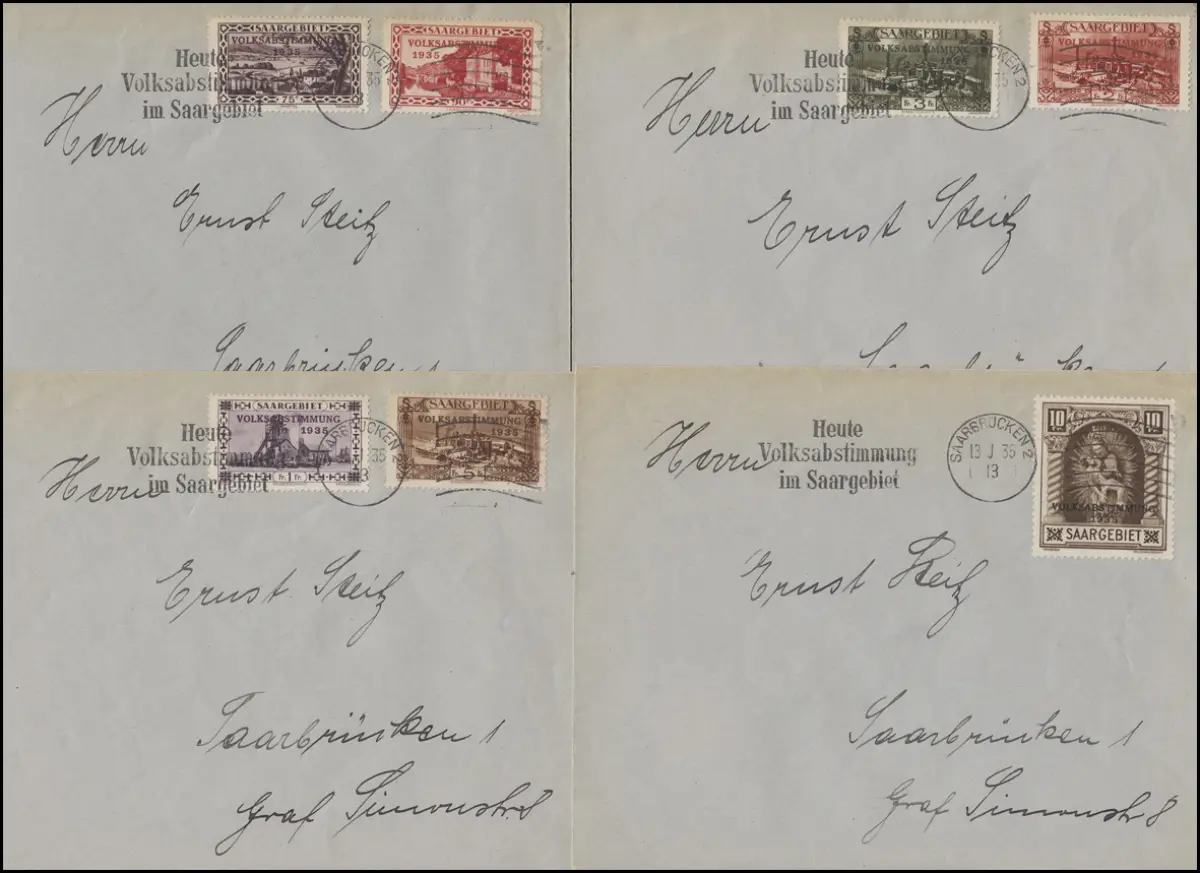 SAARGEBIET
VOLKSABSTIMMUNG
1935
75
SAARGEBIET
VOLKSABSTIMMUNG
1935
90
Heute
Volksabstimmung
im Saargebiet
35
Herrn
Ernst Steitz
Saarbrücken 1
SAARGEBIET
VOLKSABSTIMMUNG
1935
Fr. 3 Fr.
SAARGEBIET
VOLKSABSTIMMUNG
Heute
Volksabstimmung
im Saargebiet
CKEN 2
35
Herrn
Ernst Steitz
SAARGEBIET
VOLKSABSTIMMUNG
1935
Fr. 1 Fr.
SAARGEBIET
VOLKSABSTIMMUNG
1935
5
Heute
Volksabstimmung
im Saargebiet
AARBRÜCKEN 2
35
3
Herrn
Ernst Steitz
Saarbrücken 1
Graf Simonstr 8
Heute
Volksabstimmung
im Saargebiet
SAARBRÜCKEN 2
13 J 35
13
10 10
VOLKSABSTIMMUNG
1935
SAARGEBIET
Herrn
Ernst Steitz
Saarbrücken 1
Graf Simonstr 8